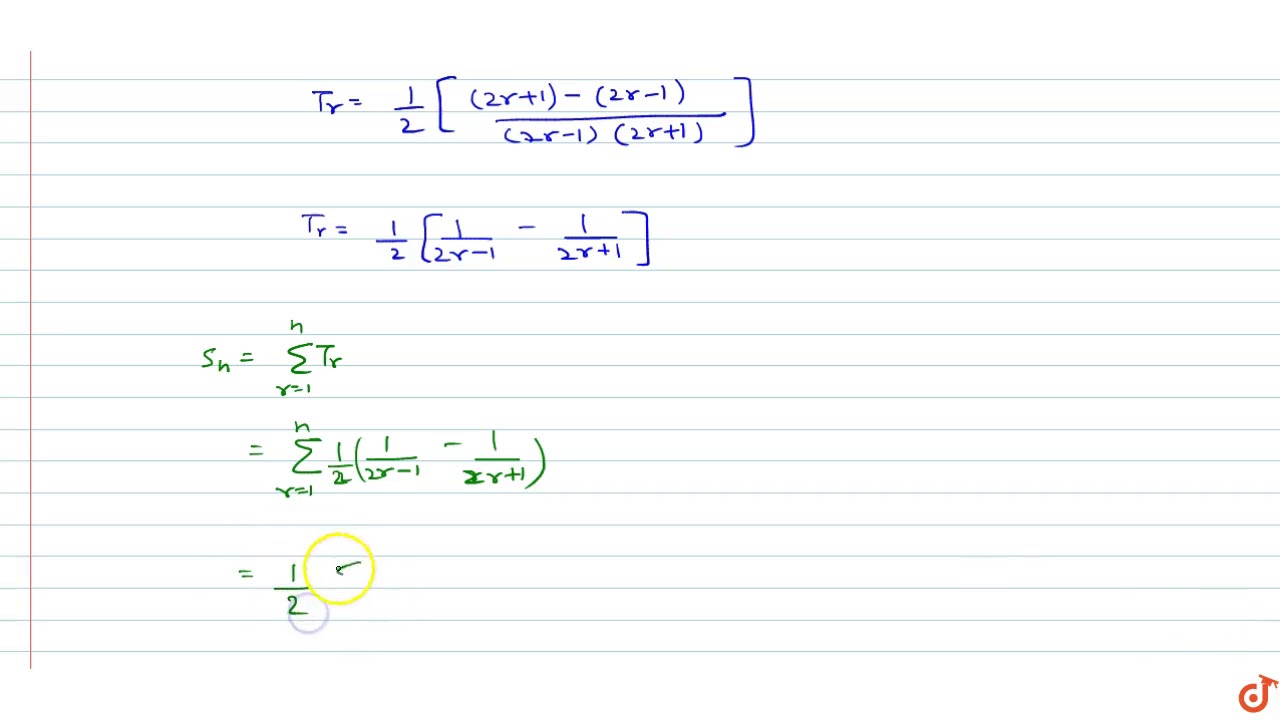 Tr = 1/2 [ (2r+1) - (2r-1) / (2r-1) (2r+1) ]
Tr = 1/2 [ 1/2r-1 - 1/2r+1 ]
Sn = n∑r=1 Tr
= n∑r=1 1/2 ( 1/2r-1 - 1/2r+1 )
= 1/2